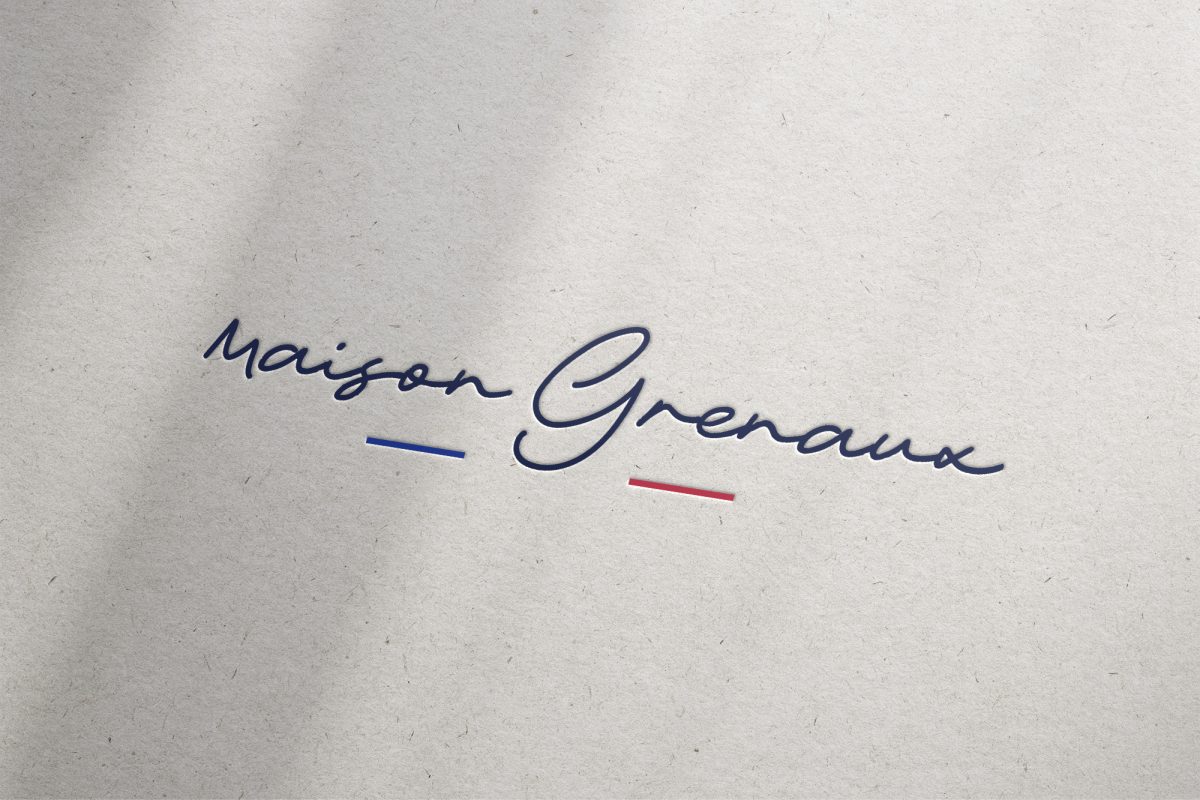 Maison Grenaux